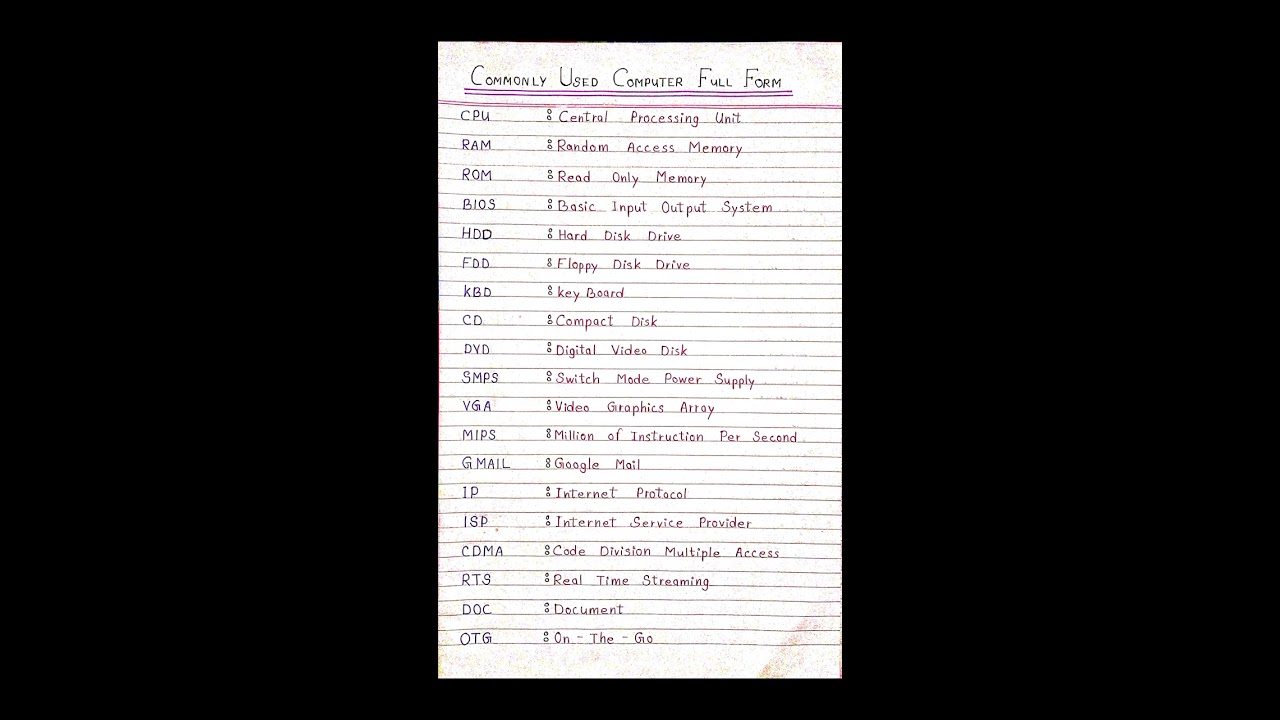 COMMONLY USED COMPUTER FULL FORM
CPU : Central Processing Unit
RAM : Random Access Memory
ROM : Read Only Memory
BIOS : Basic Input Output System
HDD : Hard Disk Drive
FDD : Floppy Disk Drive
KBD : key Board
CD : Compact Disk
DVD : Digital Video Disk
SMPS : Switch Mode Power Supply
VGA : Video Graphics Array
MIPS : Million of Instruction Per Second
GMAIL : Google Mail
IP : Internet Protocol
ISP : Internet Service Provider
CDMA : Code Division Multiple Access
RTS : Real Time Streaming
DOC : Document
OTG : On - The - Go